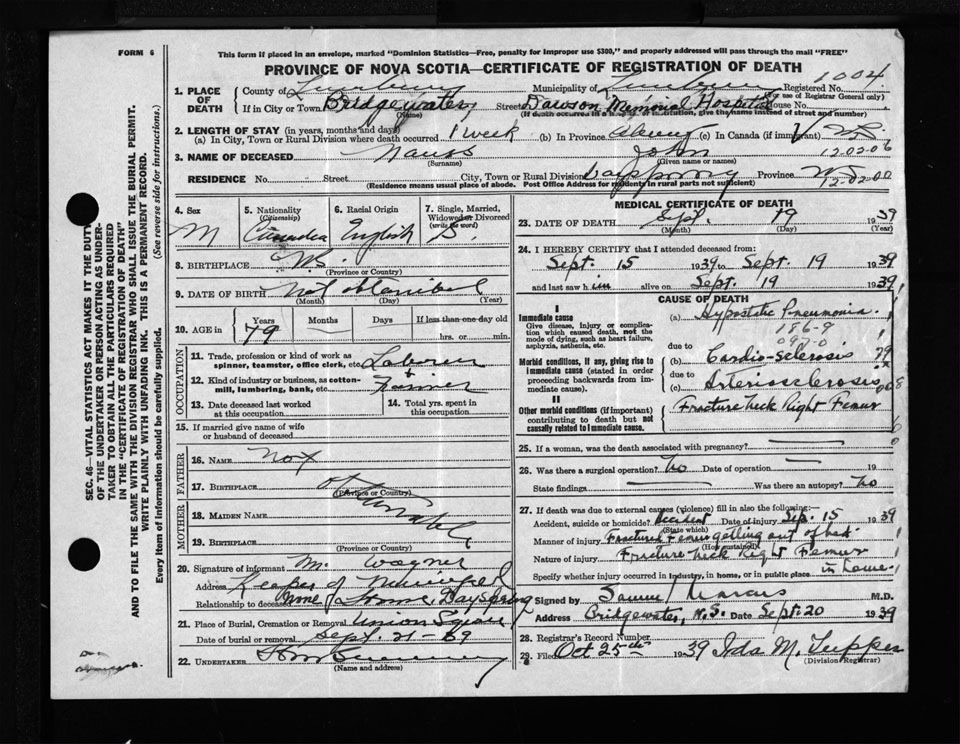 FORM 6
This form if placed in an envelope, marked "Dominion Statistics—Free, penalty for improper use $300," and properly addressed will pass through the mail "FREE"
PROVINCE OF NOVA SCOTIA—CERTIFICATE OF REGISTRATION OF DEATH
1. PLACE OF DEATH
County of Lunenburg Municipality of Lunenburg Registered No. 1004
(For use of Registrar General only)
If in City or Town Bridgewater Street Dawson Memorial Hospital House No.
(Name) (If death occurred in a hospital or institution, give the name instead of street and number)
2. LENGTH OF STAY (in years, months and days)
(a) In City, Town or Rural Division where death occurred 1 week (b) In Province Always (c) In Canada (if immigrant)
3. NAME OF DECEASED Nauss John 12.02.06
(Surname) (Given name or names)
RESIDENCE No. Street City, Town or Rural Division Dayspring Province N.S. 12.02.00
(Residence means usual place of abode. Post Office Address for residents in rural parts not sufficient)
4. Sex M
5. Nationality (Citizenship) Canadian
6. Racial Origin English
7. Single, Married, Widowed or Divorced (write the word) S.
8. BIRTHPLACE N.S.
(Province or County)
9. DATE OF BIRTH Not obtainable
(Month) (Day) (Year)
10. AGE in Years 79 Months — Days If less than one day old hrs. or min.
OCCUPATION
11. Trade, profession or kind of work as spinner, teamster, office clerk, etc. Laborer
+
12. Kind of industry or business, as cotton-mill, lumbering, bank, etc. Farmer
13. Date deceased last worked at this occupation
14. Total yrs. spent in this occupation
15. If married give name of wife or husband of deceased
FATHER
16. NAME Not
17. BIRTHPLACE obtainable
(Province or County)
MOTHER
18. MAIDEN NAME
19. BIRTHPLACE
(Province or County)
20. Signature of informant M. Wagner
Address Keeper of
Relationship to deceased Home, Dayspring
21. Place of Burial, Cremation or Removal Union Square
Date of burial or removal Sept. 21-39
22. UNDERTAKER
(Name and address)
MEDICAL CERTIFICATE OF DEATH
23. DATE OF DEATH Sept. 19 1939
(Month) (Day) (Year)
24. I HEREBY CERTIFY that I attended deceased from:
Sept. 15 1939 to Sept. 19 1939
and last saw him alive on Sept. 19 1939
CAUSE OF DEATH
I
Immediate cause
Give disease, injury or complication which caused death, not the mode of dying, such as heart failure, asphyxia, asthenia, etc.
(a) Hypostatic Pneumonia
186-9
due to
Morbid conditions, if any, giving rise to immediate cause (stated in order proceeding backwards from immediate cause).
(b) Cardio-sclerosis
due to
(c) Arteriosclerosis
II
Other morbid conditions (if important) contributing to death but not causally related to immediate cause.
Fracture neck Right Femur
25. If a woman, was the death associated with pregnancy? —
26. Was there a surgical operation? No Date of operation — 19
State findings — Was there an autopsy? No
27. If death was due to external causes (violence) fill in also the following:—
Accident, suicide or homicide? Accident Date of injury Sep. 15 1939
(State which)
Manner of injury Fractured Femur getting out of bed
(How sustained)
Nature of injury Fracture neck Right Femur
Specify whether injury occurred in industry, in home, or in public place in home
Signed by Samuel Marcus M.D.
Address Bridgewater, N.S. Date Sept. 20 1939
28. Registrar's Record Number
29. Filed Oct 25th 1939 Ida M. Tupper
(Division Registrar)
SEC. 46—VITAL STATISTICS ACT MAKES IT THE DUTY OF THE UNDERTAKER OR PERSON ACTING AS UNDERTAKER TO OBTAIN ALL THE PARTICULARS REQUIRED IN THE "CERTIFICATE OF REGISTRATION OF DEATH" AND TO FILE THE SAME WITH THE DIVISION REGISTRAR WHO SHALL ISSUE THE BURIAL PERMIT.
WRITE PLAINLY WITH UNFADING INK. THIS IS A PERMANENT RECORD.
Every item of information should be carefully supplied. (See reverse side for instructions.)